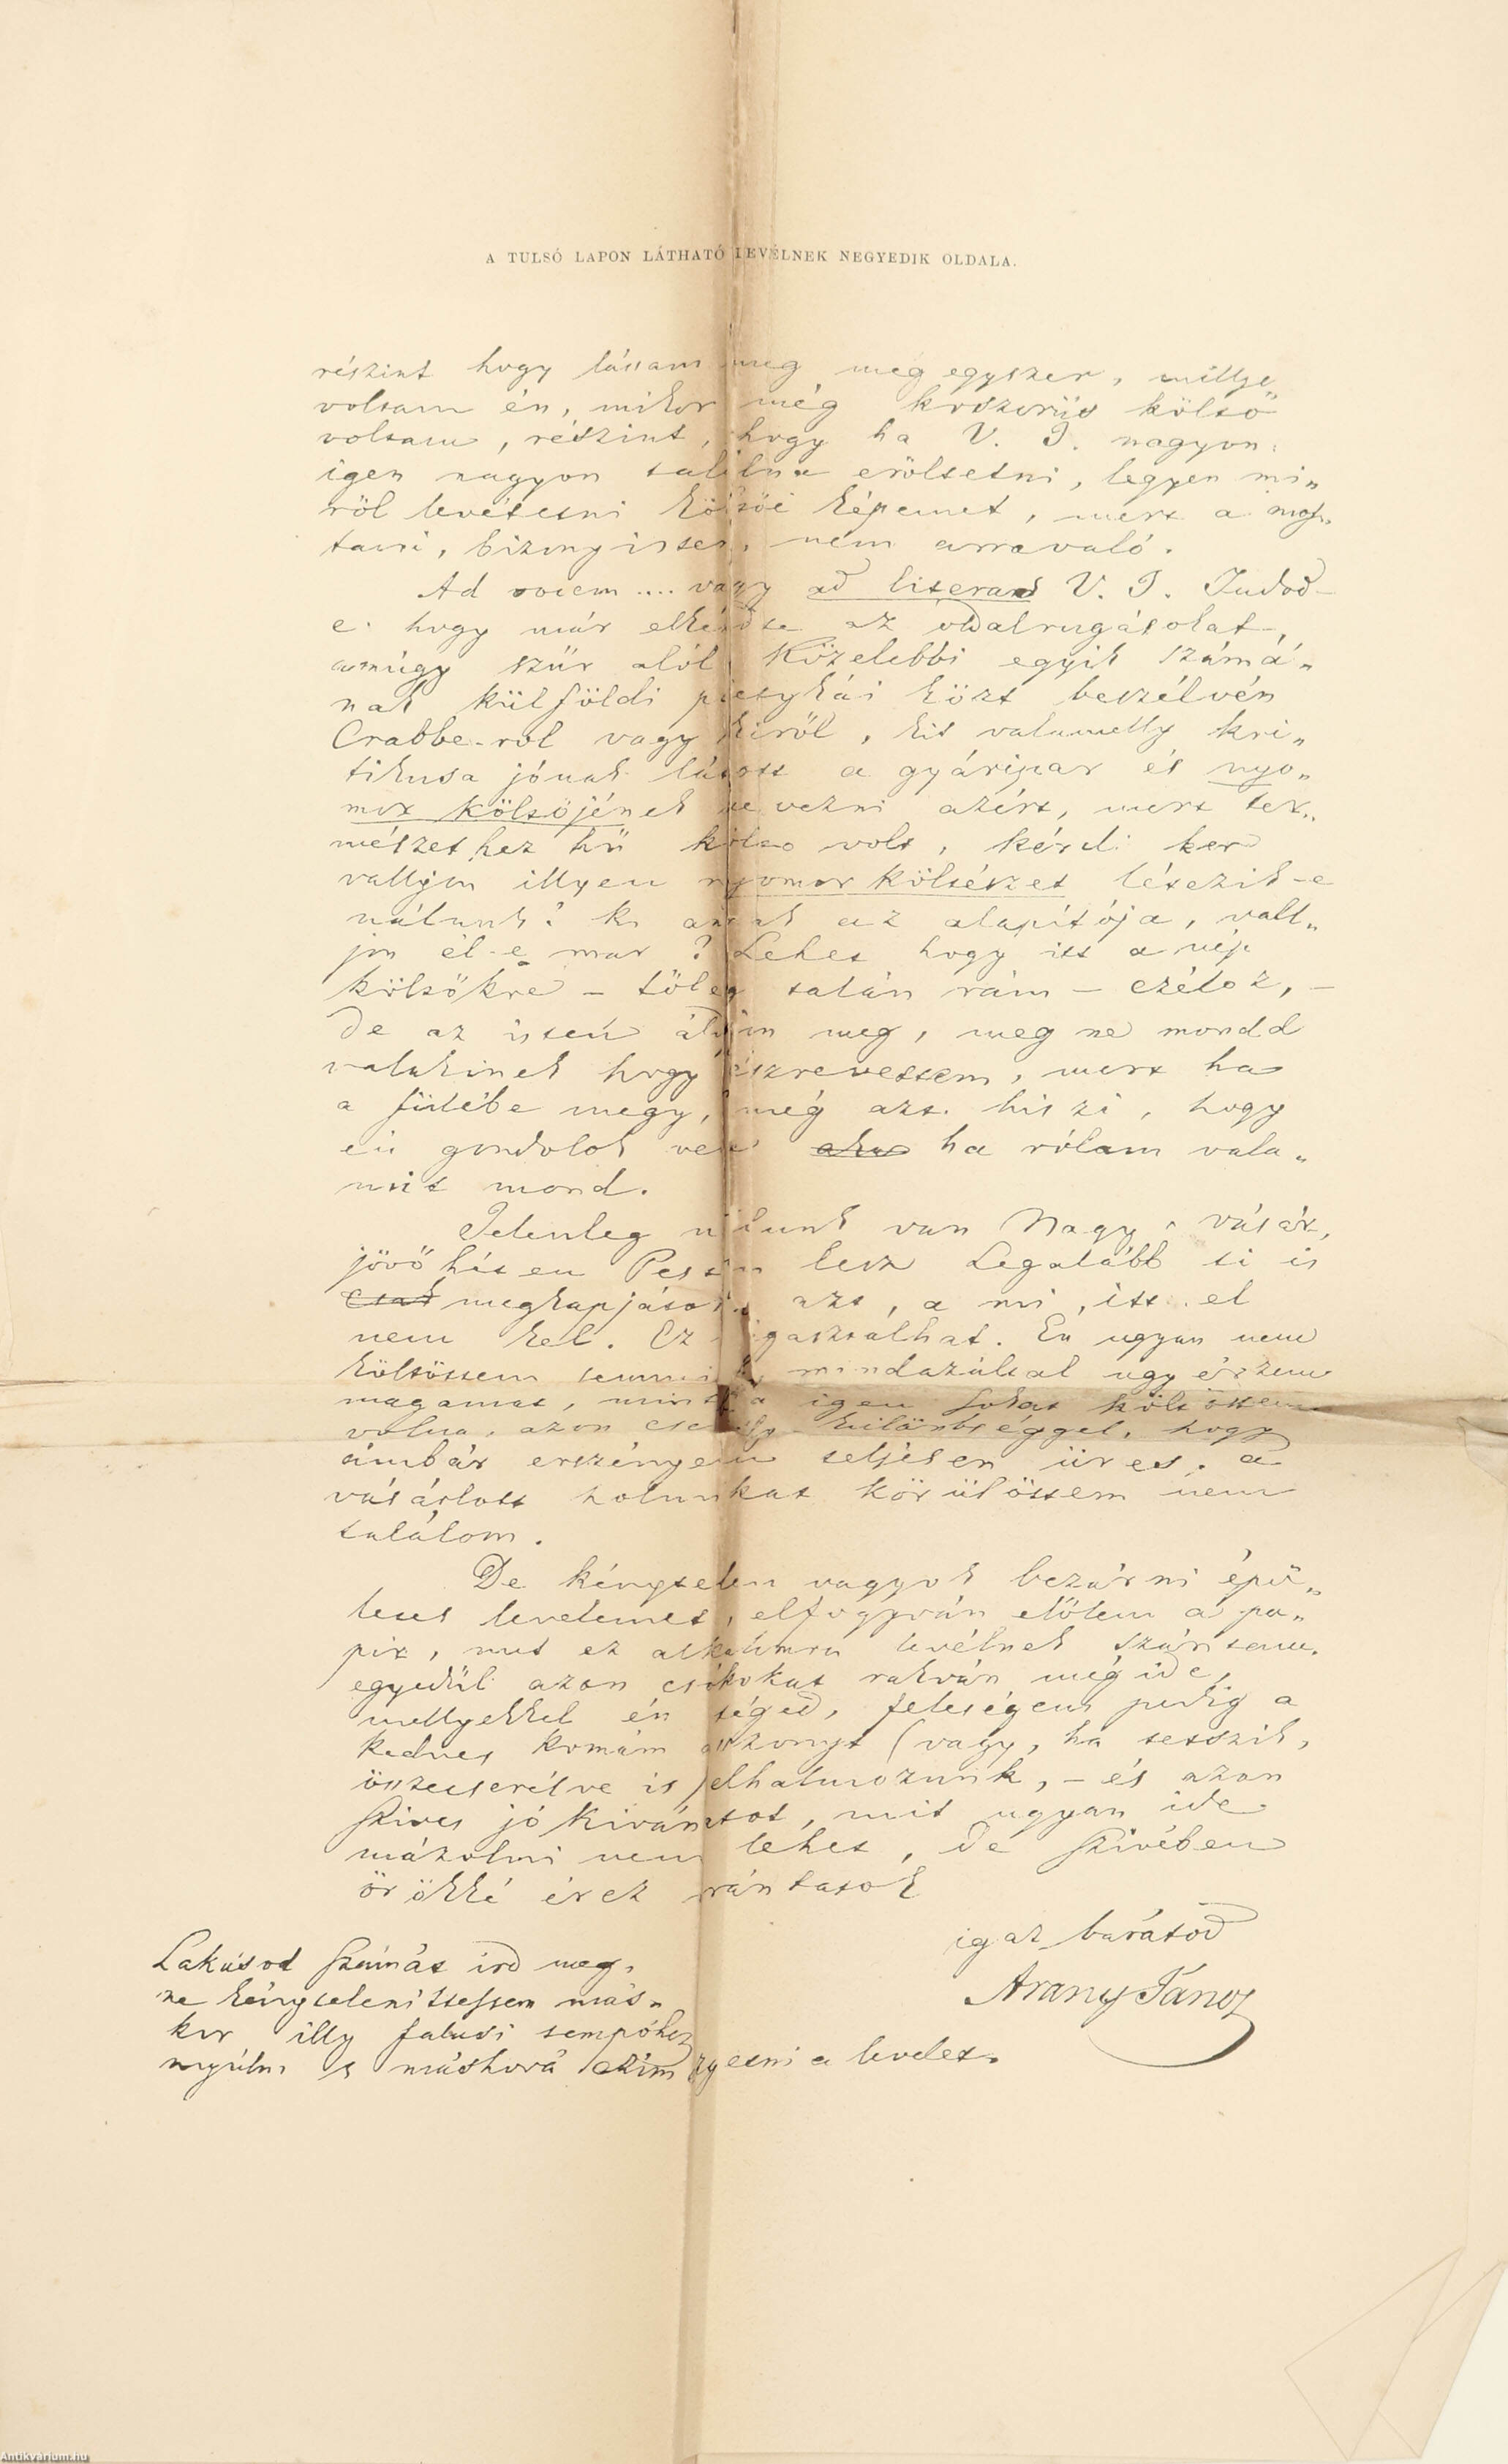 A TULSÓ LAPON LÁTHATÓ LEVÉLNEK NEGYEDIK OLDALA.
részint hogy lássam meg még egyszer, millye„
voltam én, mikor még koszorús költő
voltam, részint, hogy ha V. I. nagyon
igen nagyon találna erőltetni, legyen mi„
ről levétetni költői képemet, mert a mos„
tani, bizony isten, nem arravaló.
Ad vocem .... vagy ad literas V. I. Tudod-
e hogy már elkezdte az oldalrugásokat,
amúgy szűr alól. Közelebbi egyik számá„
nak külföldi pletykái közt beszélvén
Crabbe-ről vagy kiről, kit valamelly kri„
tikusa jónak látott a gyáripar és nyo„
mor költőjének nevezni azért, mert ter„
mészethez hű költő volt, kérdi
valljon illyen nyomor költészet létezik-e
nálunk? ki annak az alapítója, vall„
jon él-e már? Lehet hogy itt a nép
költőkre – főleg talán rám – czéloz, –
de az isten áldjon meg, meg ne mondd
valakinek hogy észrevettem, mert ha
a fülébe megy, még azt hiszi, hogy
én gondolok vele ha rólam vala„
mit mond.
Jelenleg nálunk van Nagy vásár,
jövő héten Pesten lesz Legalább ti is
csak megkapjátok azt, a mi itt el
nem kel. Ez vigasztalhat. Én ugyan nem
költöttem semmit, mindazáltal ugy érzem
magamat, mintha igen sokat költöttem
volna, azon csekély különbséggel, hogy
ámbár erszényem teljesen üres, a
vásárlott holmikat körülöttem nem
találom.
De kénytelen vagyok bezárni épü„
letes levelemet, elfogyván előlem a pa„
pir, mit ez alkalomra levélnek szántam.
egyedül azon csókokat rakván még ide,
mellyekkel én téged, feleségem pedig a
kedves komám asszonyt (vagy, ha tetszik,
összecserélve is) elhalmozunk, – és azon
szives jó kivánatot, mit ugyan ide
mázolni nem lehet, de szivében
örökké érez irántatok
igaz barátod
Arany János
Lakásod számát ird meg,
ne kénytelenittessem más„
kor illy falusi tempóhoz
nyúlni s máshová czimezgetni a levelet.
Antikvárium.hu